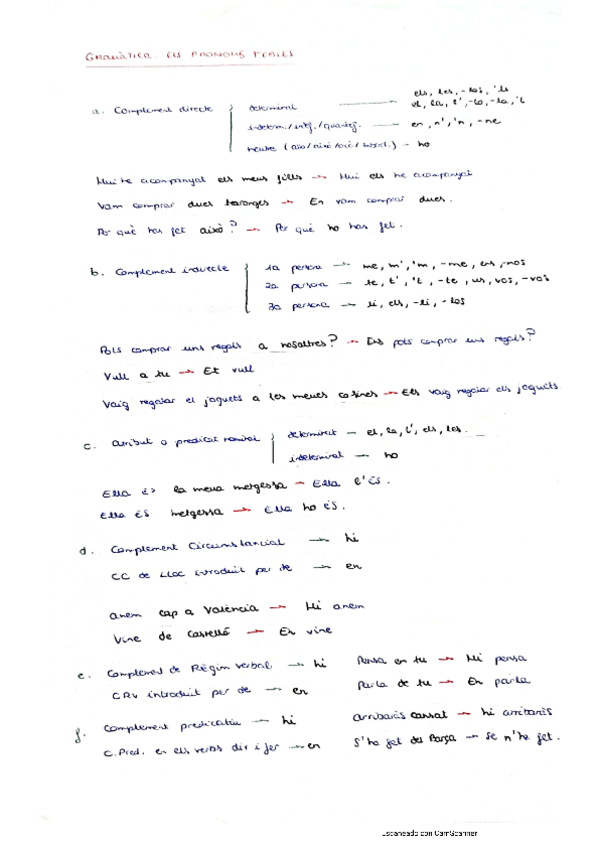 GRAMÀTICA. ELS PRONOMS FEBLES
els, les, -los, 'ls
a. Complement directe determinat → el, la, l', -lo, -la, 'l
indeterm./inf./quantif. → en, n', 'n, -ne
neutre (allò/això/açò/subord.) → ho
Hui he acompanyat els meus fills → Hui els he acompanyat
Vam comprar dues taronges → En vam comprar dues.
Per què has fet això? → Per què ho has fet.
b. Complement indirecte 1a persona → me, m', 'm, -me, ens, -nos
2a persona → te, t', 't, -te, us, vos, -vos
3a persona → li, els, -li, -los
Pots comprar uns regals a nosaltres? → Ens pots comprar uns regals?
Vull a tu → Et vull
Vaig regalar el joguets a les meues cosines → Els vaig regalar els joguets
c. Atribut o predicat nominal determinat → el, la, l', els, les.
indeterminat → ho
Ella és la meua metgessa → Ella l'és.
Ella és metgessa → Ella ho és.
d. Complement Circumstancial → hi
CC de Lloc introduït per de → en
Anem cap a València → Hi anem
Vinc de Castelló → En vinc
e. Complement de Règim verbal → hi Pensa en tu → Hi pensa
CRV introduït per de → en Parla de tu → En parla
f. Complement predicatiu → hi Arribaràs cansat → hi arribaràs
C. Pred. en els verbs dir i fer → en S'ha fet del Barça → Se n'ha fet.
Escaneado con CamScanner